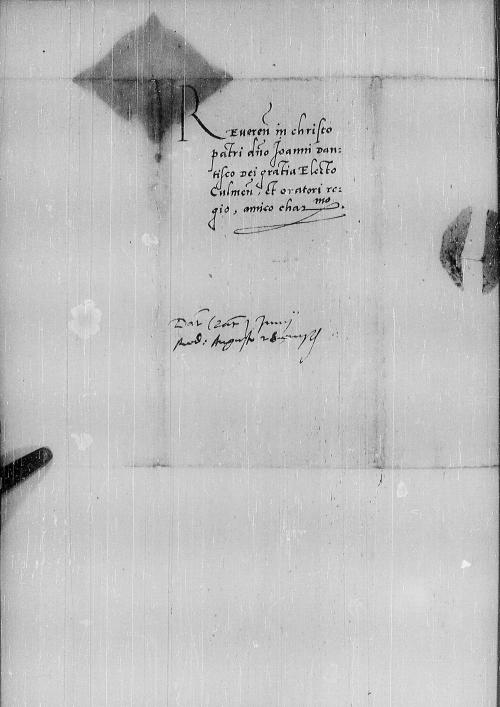 Reveren̄ in christo
patri dn̄o Joanni Dan:
tisco Dei gratia Electo
Culmen̄, et oratori re:
gio, amico char mo.
Dat Junij
Augusto